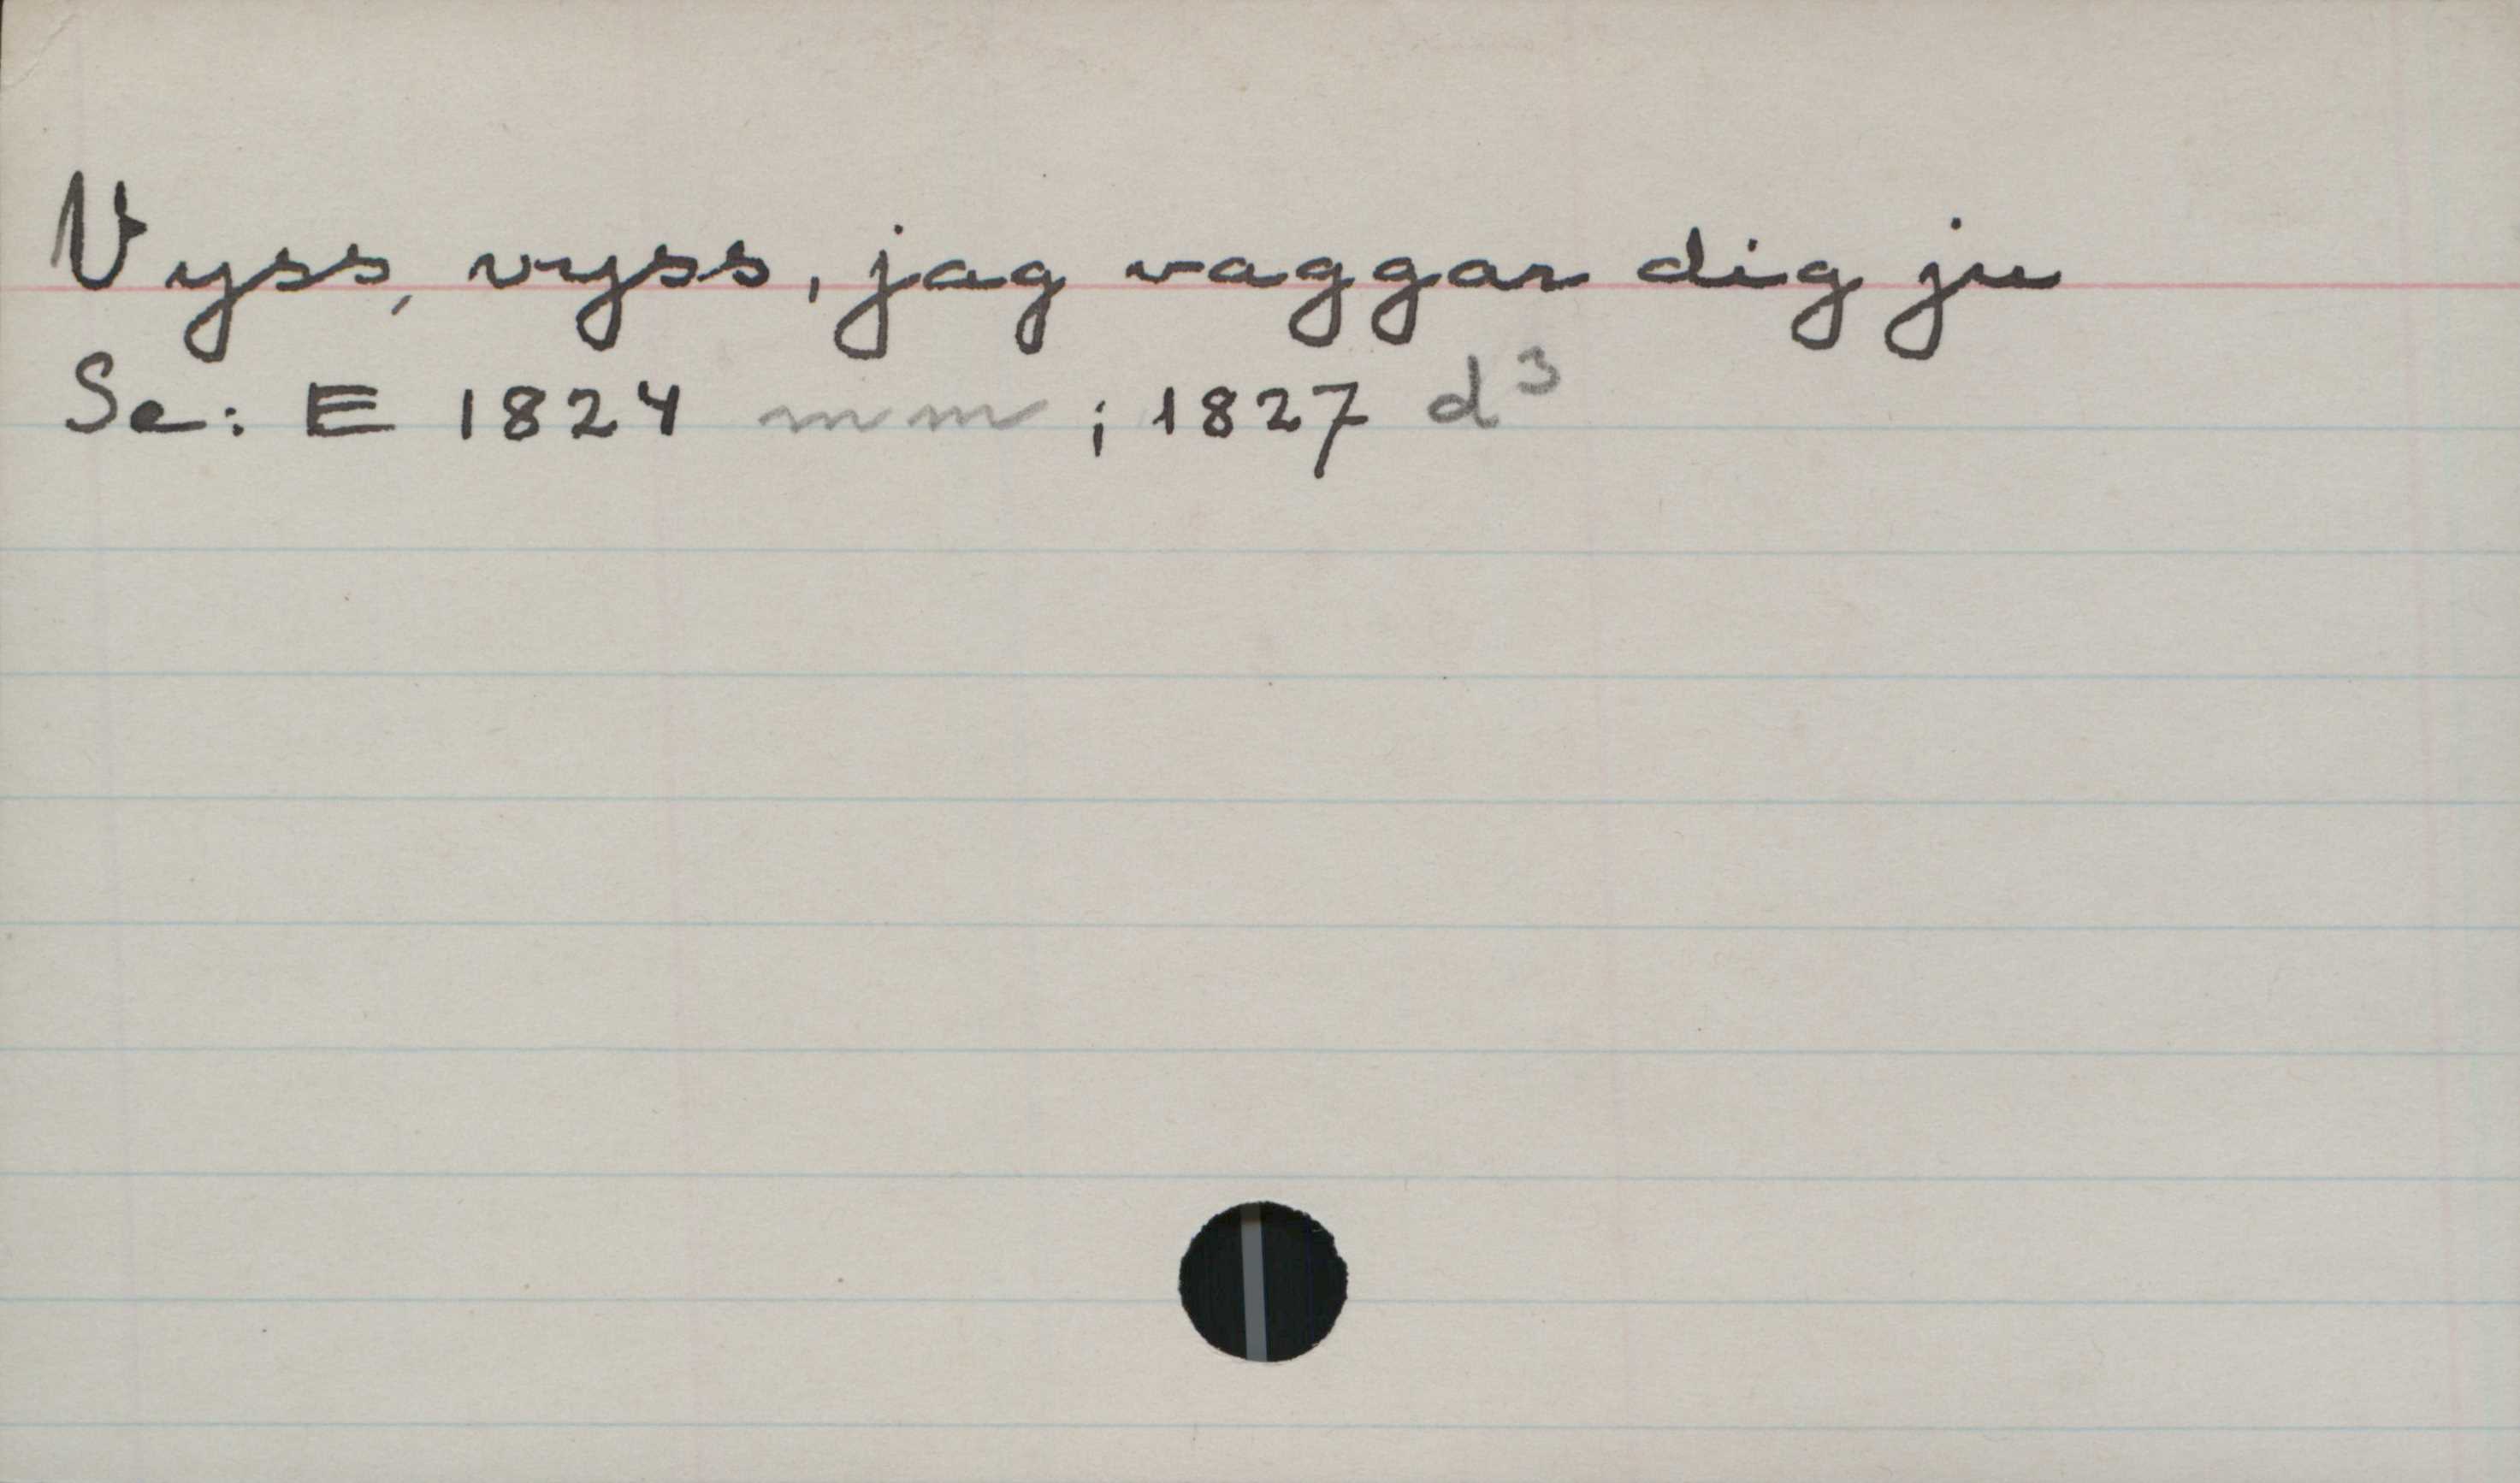 Vyss, vyss, jag vaggar dig ju
Se: E 1824 mm ; 1827 d³